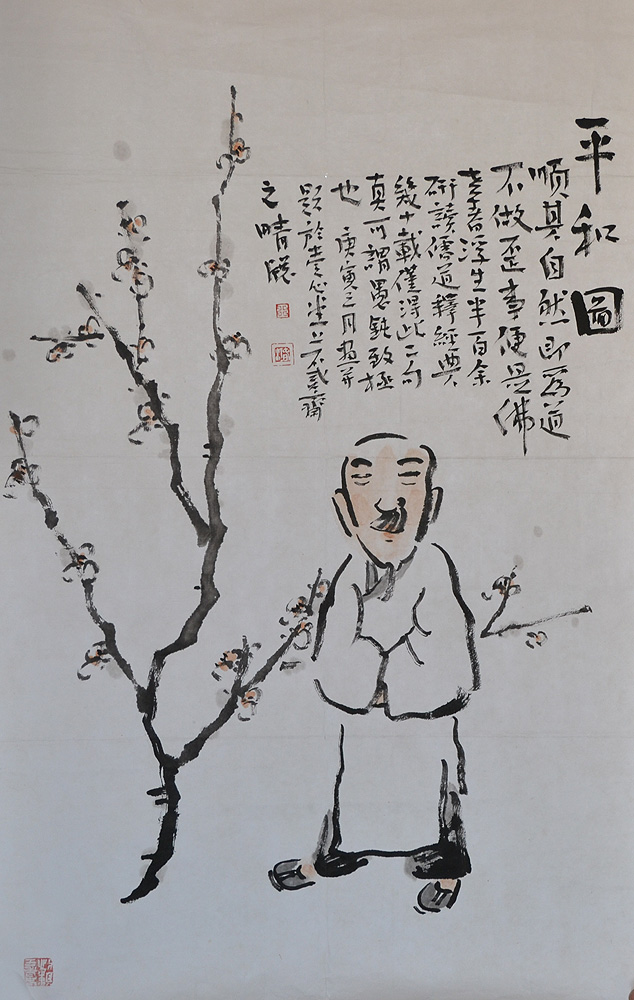 平和圖
順其自然即爲道
不做歪事便是佛
浮生半百余
研讀儒道釋經典
幾十載僅得此二句
真可謂愚鈍致極
也 庚寅三月画并
題於 不貳齋
之晴牕